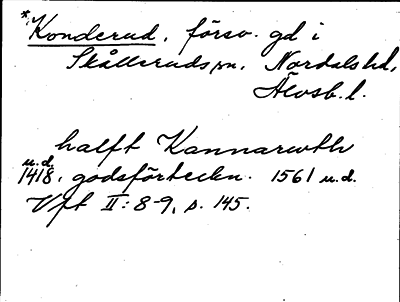 *Konderud, försv. gd i
Skållerudss sn, Nordals hd,
Älvsb. l.
halft Kannarwth
u.d.
1418, godsförteckn. 1561 u.d.
Vft II: 8-9, s. 145.